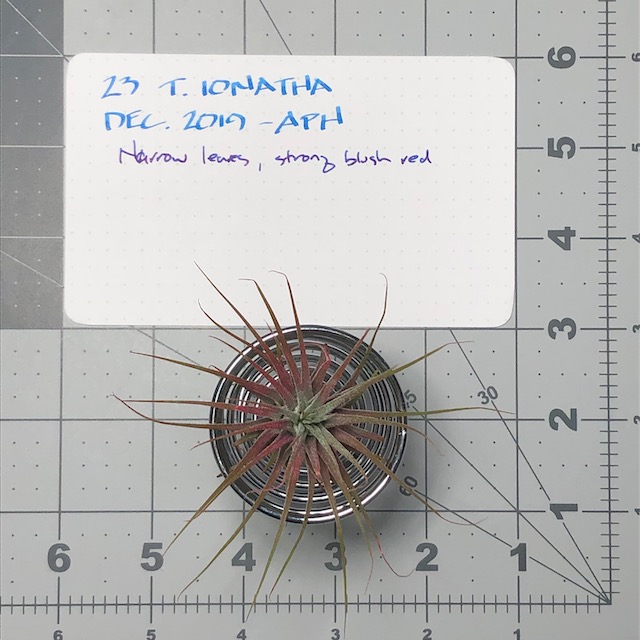 23 T. IONATHA
DEC. 2019 - APH
Narrow leaves, strong blush red
6
6
5
5
4
4
3
3
2
2
30
45
60
1
1
6 5 4 3 2 1
6 5 4 3 2 1